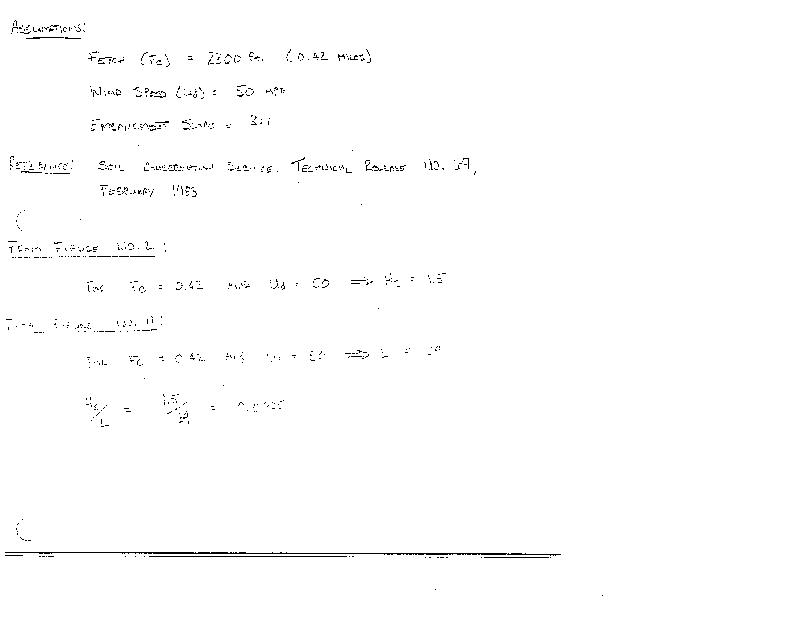 ASSUMPTIONS:
FETCH (Fe) = 2300 FT. (0.42 MILES)
WIND SPEED (Ud) = 50 MPH
EMBANKMENT SLOPE = 3:1
REFERENCE: SOIL CONSERVATION SERVICE, TECHNICAL RELEASE NO. 
FEBRUARY 1983
FROM FIGURE NO. 2:
FOR Fe = 0.42 AND Ud = 50 ⟹ Hs = 1.5
FROM FIGURE NO. 
FOR Fe = 0.42 AND Ud = 50 ⟹ L =
Hs/L =